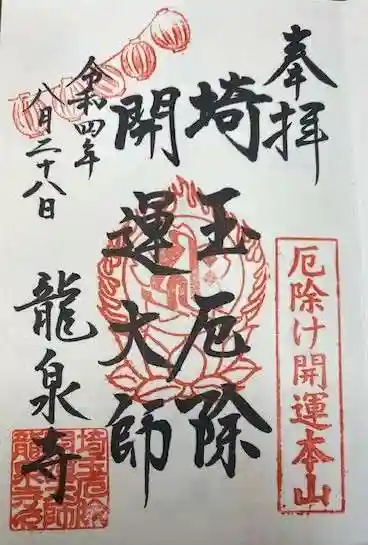 奉拝
厄除け開運本山
埼玉厄除
開運大師
令和四年
八月二十八日
龍泉寺